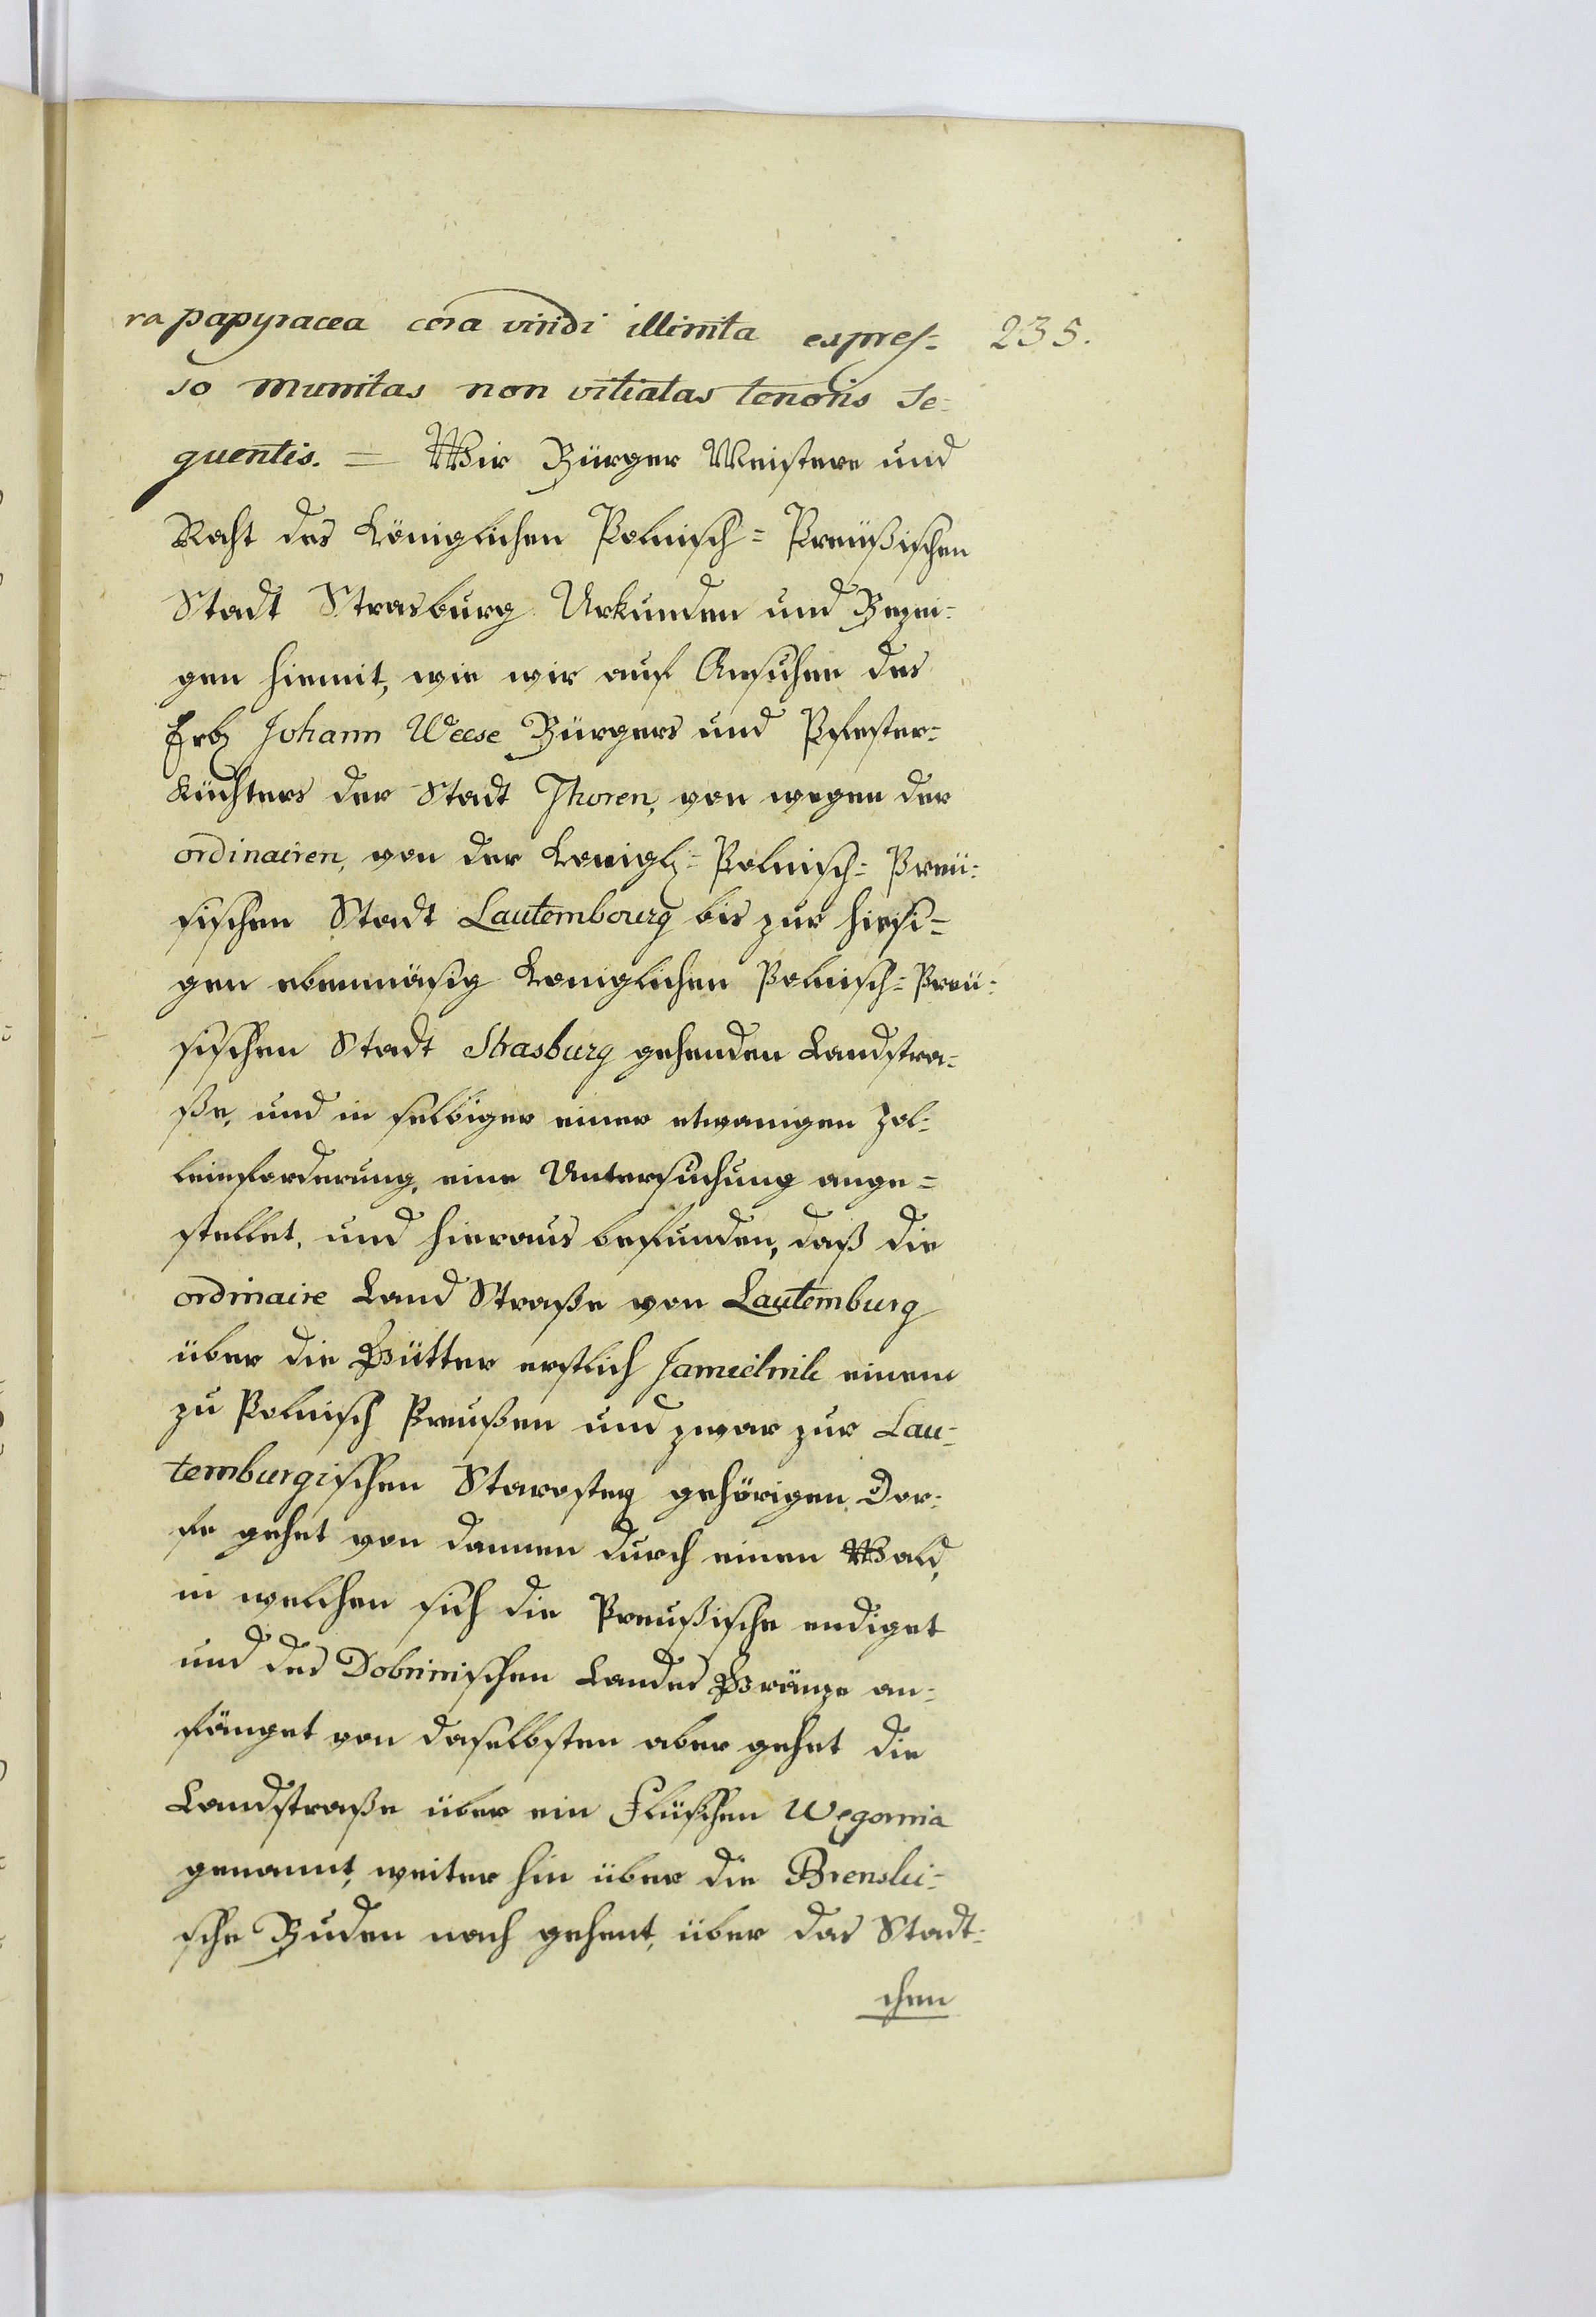 ra papyracea cera viridi illinita expres- 235.
so munitas non vitiatas tenoris se-
quentis. = Wir Bürger Meistere und
Raht des Königlichen Polnisch-Preüßischen
Stadt Strasburg Urkunden und Bezei-
gen hiemit, wie wir auf Ansuchen des
Erb Johann Weese Bürgers und Pfeffer-
küchters der Stadt Thoren, von wegen der
ordinairen, von der Konigl-Polnisch-Preü-
sischen Stadt Lautembourg bis zur hiesi-
gen ebenmäsig Koniglichen Polnisch-Preü-
sischen Stadt Strasburg gehenden Landstra-
ße, und in selbiger einer etwanigen Zol-
leinforderung, eine Untersuchung ange-
stellet, und hieraus befunden, daß die
ordinaire Land Straße von Lautemburg
über die Gütter erstlich Jamielnik einem
zu Polnisch Preußen und zwar zur Lau-
temburgischen Starostey gehörigen Dor-
fe gehet von dannen durch einen Wald,
in welchen sich die Preußische endiget
und des Dobrinischen Landes Gränze an-
fänget von daselbsten aber gehet die
Landstraße über ein Flüßchen Wegornia
genannt, weiter hin über die
sche Buden nach gehent, über das Stadt-
chen